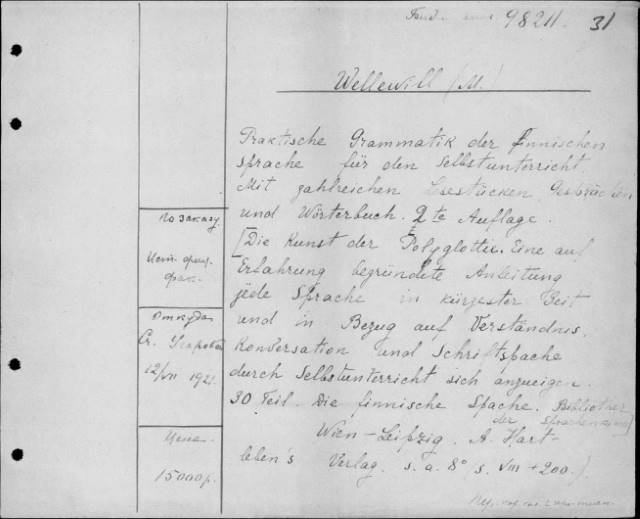 98211. 31
Wellewill (M.)
Praktische Grammatik der finnischen
Sprache für den Selbstunterricht.
Mit zahlreichen Lsestücken, Gesprächen
und Wörterbuch. 2te Auflage.
[Die Kunst der Polyglottie. Eine auf
Erfahrung begründete Anleitung
jede Sprache in kürzester Zeit
und in Bezug auf Verständnis.
Konversation und Schriftspache
durch Selbstunterricht sich anzueigen.
30 Teil. Die finnische Spache. Bibliothek
der Sprachenkunde]
Wien-Leipzig. A. Hart-
leben's Verlag. s. a. 8° (s. VIII + 200.)
По заказу.
фак.
Откуда
Ст.
12/VII 1921.
Цена.
15000 р.